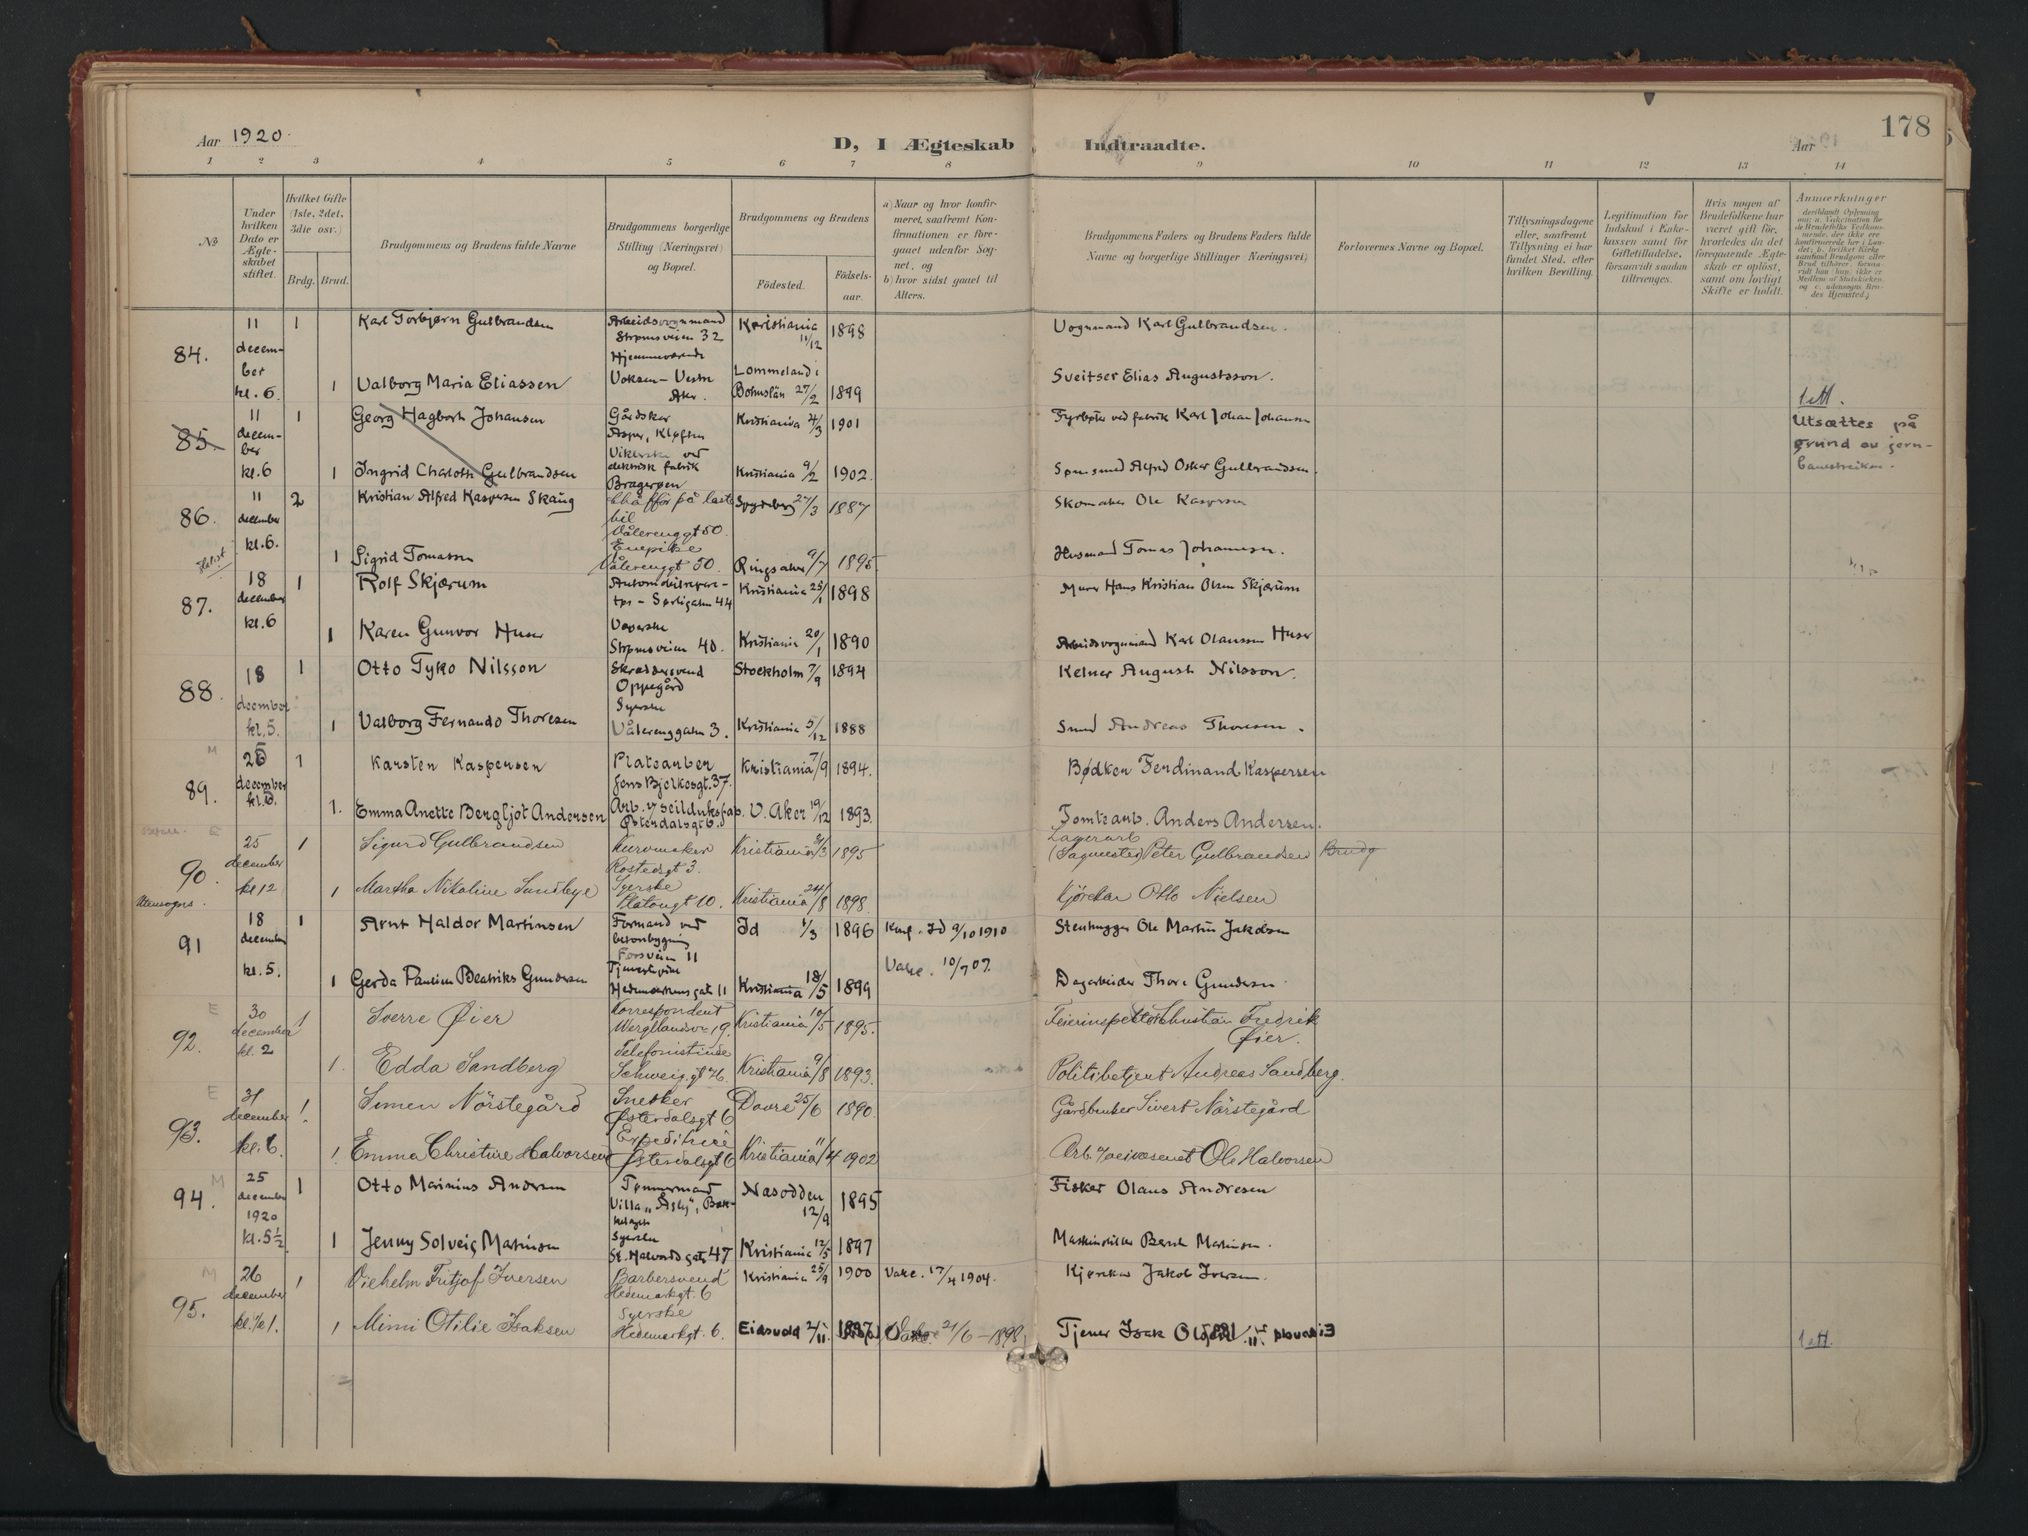 Aar 1920.
D, I Ægteskab Indtraadte.
Aar
178
1 2 3 4 5 6 7 8 9 10 11 12 13 14
No
Under hvilken Dato er Ægteskabet stiftet.
Hvilket Gifte (1ste, 2det, 3die osv.)
Brdg. Brud.
Brudgommens og Brudens fulde Navne
Brudgommens borgerlige Stilling (Næringsvei) og Bopæl.
Brudgommens og Brudens
Födested.
Födselsaar.
a) Naar og hvor konfirmeret, saafremt Konfirmationen er foregaaet udenfor Sognet, og
b) hvor sidst gaaet til Alters.
Brudgommens Faders og Brudens Faders fulde Navne og borgerlige Stillinger Næringsvei)
Forlovernes Navne og Bopæl.
Tillysningsdagene eller, saafremt Tillysning ei har fundet Sted, efter hvilken Bevilling.
Legitimation for Indskud i Enkekassen samt for Giftetilladelse, forsaavidt saadan tiltrænges.
Hvis nogen af Brudefolkene har været gift för, hvorledes da det foregaaende Ægteskab er oplöst, samt om lovligt Skifte er holdt.
Anmærkninger
84. 11 december kl. 6. 1 Karl Torbjørn Gulbrandsen Arbeidsvognmand Strømsveien 32 Kristiania 11/12 1898 Vognmand Karl Gulbrandsen.
1 Valborg Maria Eliassen Hjemmeværende Voksen - Vestre Aker. Lommeland i Bohuslän 27/2 1899 Sveitser Elias Augustsson.
85. 11 december kl. 6 1 Georg Hagbarth Johansen Gårdskar Asper, Kløften Kristiania 4/3 1901 Fyrbøter ved fabrik Karl Johan Johansen Utsættes på grund av jernbanestreiken.
1 Ingrid Charloth Gulbrandsen Viklerske ved elektrisk fabrik Bragerøen Kristiania 9/2 1902. Alfred Oskar Gulbrandsen.
86. 11 december kl. 6. 2 Kristian Alfred Kaspersen Skaug på lastebil Vålerenggt 50. Spydeberg 27/3 1887 Skomaker Ole Kaspersen
1 Sigrid Tomassen Enepike Vålerenggt 50. Ringsaker 9/7 1895 Husmand Tomas Johannesen.
87. 18 december kl. 6 1 Rolf Skjærum Automobilreparatør - Sørligaten 44 Kristiania 25/1 1898 Murer Hans Kristian Olsen Skjærum
1 Karen Gunvor Huser Væverske Strømsveien 40. Kristiania 20/1 1890 Arbeidsvognmand Karl Olaussen Huser
88. 18 december kl. 5. 1 Otto Tyko Nilsson Skræddersvend Oppegård Stockholm 7/9 1894 Kelner August Nilsson.
1 Valborg Fernando Thoresen Syerske Vålerenggaten 3. Kristiania 5/12 1888 Smed Andreas Thoresen.
M
89. 26 december kl. 5. 1 Karsten Kaspersen Platearber Jens Bjelkesgt. 37. Kristiania 7/9 1894. Bødker Ferdinand Kaspersen
1. Emma Anette Bergljot Andersen Arb. v/ seildukfap. Østerdalsgt 6. V. Aker 19/12 1893. Tomtearb. Anders Andersen.
E
90. 25 december kl 12 1 Sigurd Gulbrandsen Kurvmaker Rostedsgt 3. Kristiania 31/3 1895 Lagerarb (Sagmester) Peter Gulbrandsen Brudg
Utensogns.
1 Martha Nikoline Sandbye Syerske Platougt 10. Kristiania 24/8 1898. Kjørekar Otto Nielsen
91 18 december kl. 5. 1 Arnt Haldor Martinsen Formand ved betonbygning Forsveien 11 Id 1/3 1896 Konf. Id 9/10 1910 Stenhugger Ole Martin Jakobsen
1 Gerda Pauline Beatriks Gundersen Tjenestepike Hedemarkensgate 11 Kristiania 18/5 1899 Vakc. 10/7 07. Dagarbeider Thore Gundersen
E
92. 30 december kl. 2 1 Sverre Øier Korrespondent Wergelandsv. 19. Kristiania 10/5 1895. Feierinspektør Christian Fredrik Øier.
1. Edda Sandberg Telefonistinde Schweig.gt 76. Kristiania 9/8 1893. Politibetjent Andreas Sandberg.
E
93. 31 december kl. 6. 1 Simen Nörstegård Snekker Østerdalsgt 6 Dovre 25/6 1890. Gårdbruker Sivert Nörstegård
1 Emma Christine Halvorsen Expeditrice Østerdalsgt 6 Kristiania 11/4 1902 Arb. v/veivæsenet Ole Halvorsen
M
94. 25 december 1920 kl. 5½ 1 Otto Marinius Andresen Tømmermand Villa "Åsly", Bækkelaget Næsodden 12/9 1895 Fisker Olaus Andresen
1 Jenny Solveig Martinsen Syerske St. Halvards gate 47 Kristiania 12/5 1897 Maskinstiller Bernt Martinsen.
M
95. 26 december kl. ½ 1. 1 Vilhelm Fritjof Iversen Barbersvend Hedemarkgt. 6 Kristiania 25/9 1900 Vakc. 17/4 1904. Kjørekar Jakob Iversen.
1 Mimi Otilie Isaksen Syerske Hedemarkgt. 6. Eidsvold 2/11 1897 Vakc. 21/6 - 1898. Tjener Isak Olsen
1 att.